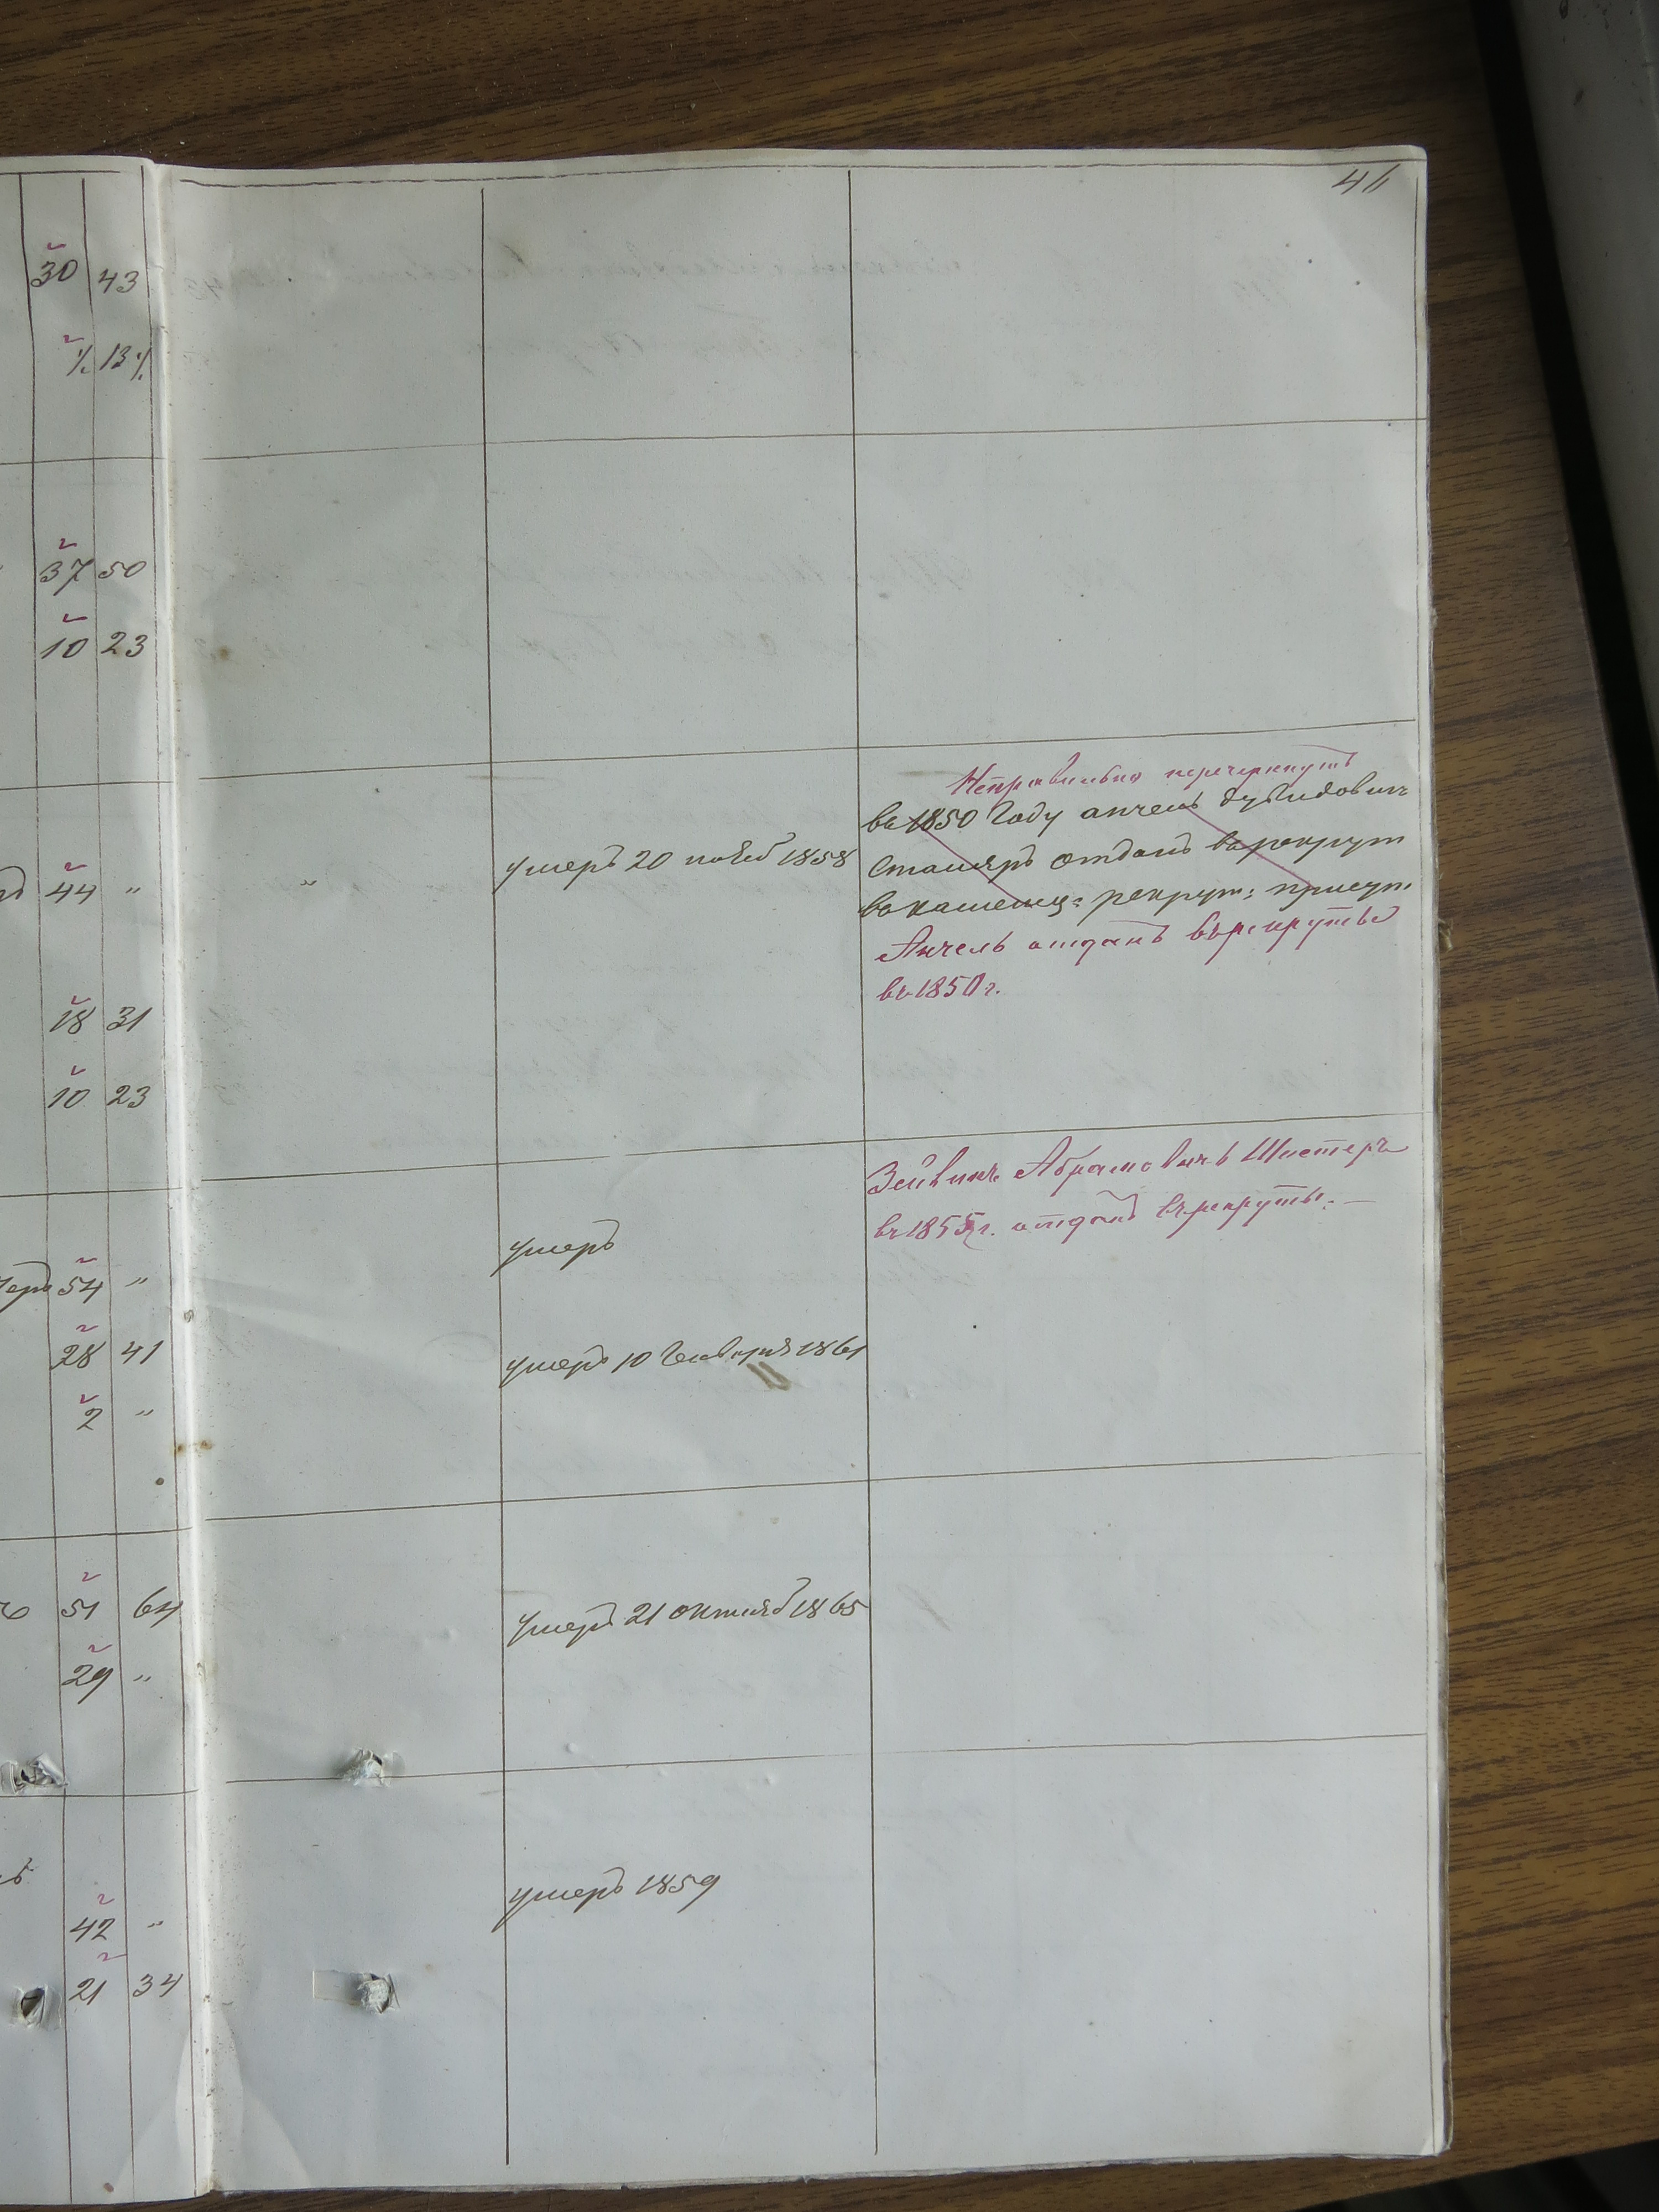 41
30 43
½ 13½
37 50
10 23
Неправильно перечеркнутъ
въ 1850 году анчель дувидовичъ
умеръ 20 нояб 1858
столяръ отданъ въ рекрут
44 "
"
въ каменец: рекрут: присут.
Анчель отданъ въ рекруты
въ 1850 г.
18 31
10 23
Зейвикъ Абрамовичъ Шистеръ
въ 1855 г. отданъ въ рекруты. —
умеръ
54 "
28 41
умеръ 10 Генваря 1861
2 "
51 64
умеръ 21 октяб 1865
29 "
42 "
умеръ 1859
21 34